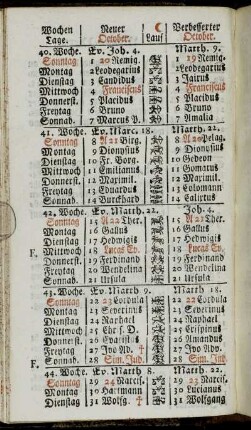 Wochen Tage. Neuer October. Lauf Verbesserter October.
40. Woche. Ev. Joh. 4. Matth. 9.
Sonntag 1 20 Remig. 1 19 Remig.
Montag 2 Leodegarius 2 Leodegarius
Dienstag 3 Candidus 3 Jairus
Mittwoch 4 Franciscus 4 Franciscus
Donnerst. 5 Placidus 5 Placidus
Freytag 6 Bruno 6 Bruno
Sonnab. 7 Marcus P. 7 Amalia
41. Woche. Ev. Marc. 18. Matth. 22.
Sonntag 8 A 21 Virg. 8 A 20 Pelag.
Montag 9 Dionysius 9 Dionysius
Dienstag 10 Fr. Borg. 10 Gedeon
Mittwoch 11 Emilianus 11
Donnerst. 12 Maximil. 12 Maximil.
Freytag 13 Eduardus 13 Colomann
Sonnab. 14 Burckhard 14 Calixtus
42. Woche. Ev. Matth. 22. Joh. 4.
Sonntag 15 A 22 Ther. 15 A 21 Ther.
Montag 16 Gallus 16 Gallus
Dienstag 17 Hedwigis 17 Hedwigis
F. Mittwoch 18 Lucas Ev. 18 Lucas Ev.
Donnerst. 19 Ferdinand 19 Ferdinand
Freytag 20 Wendelina 20 Wendelina
Sonnab. 21 Ursula 21 Ursula
43. Woche. Ev. Matth. 9. Matth. 18.
Sonntag 22 23 Cordula 22 22 Cordula
Montag 23 Severinus 23 Severinus
Dienstag 24 Raphael 24 Raphael
Mittwoch 25 Chr. S. D. 25 Crispinus
Donnerst. 26 Evaristus 26 Amandus
Freytag 27 Ivo Adv. 27 Ivo Adv.
F. Sonnab. 28 Sim. Jud. 28 Sim. Jud.
44. Woche. Ev. Matth. 8. Matth. 22.
Sonntag 29 24 Narcis. 29 23 Narcis.
Montag 30 Hartmann 30 Lucianus
Dienstag 31 Wolfg. 31 Wolfgang